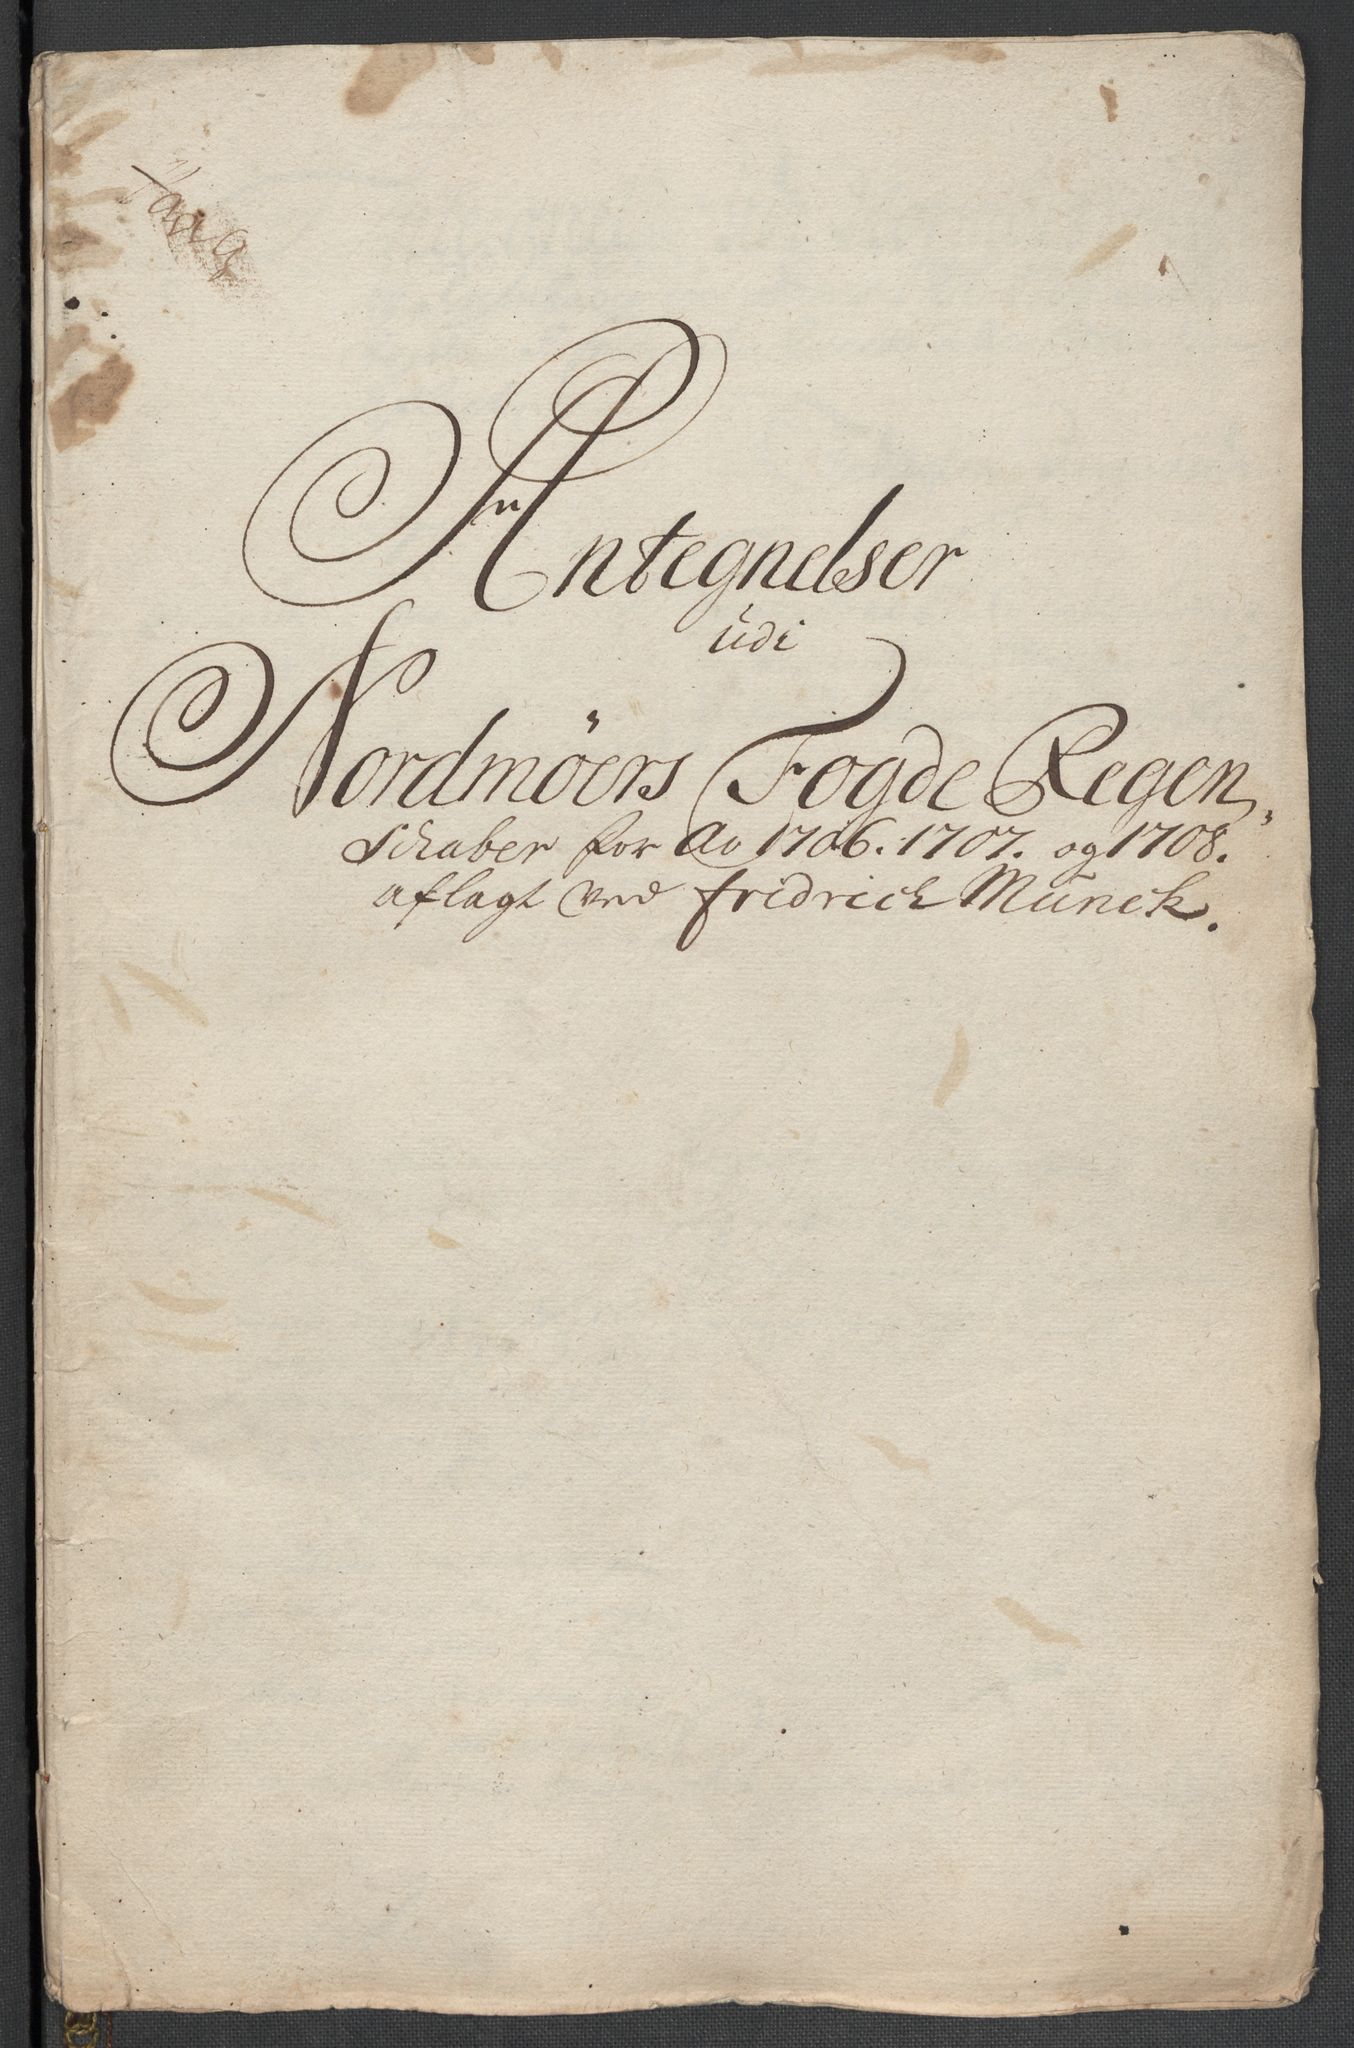 Antegnelser
udi
Nordmöers Fogde Regen,,
schaber for Ao 1706. 1707. og 1708.
aflagt ved fridrich Munck.